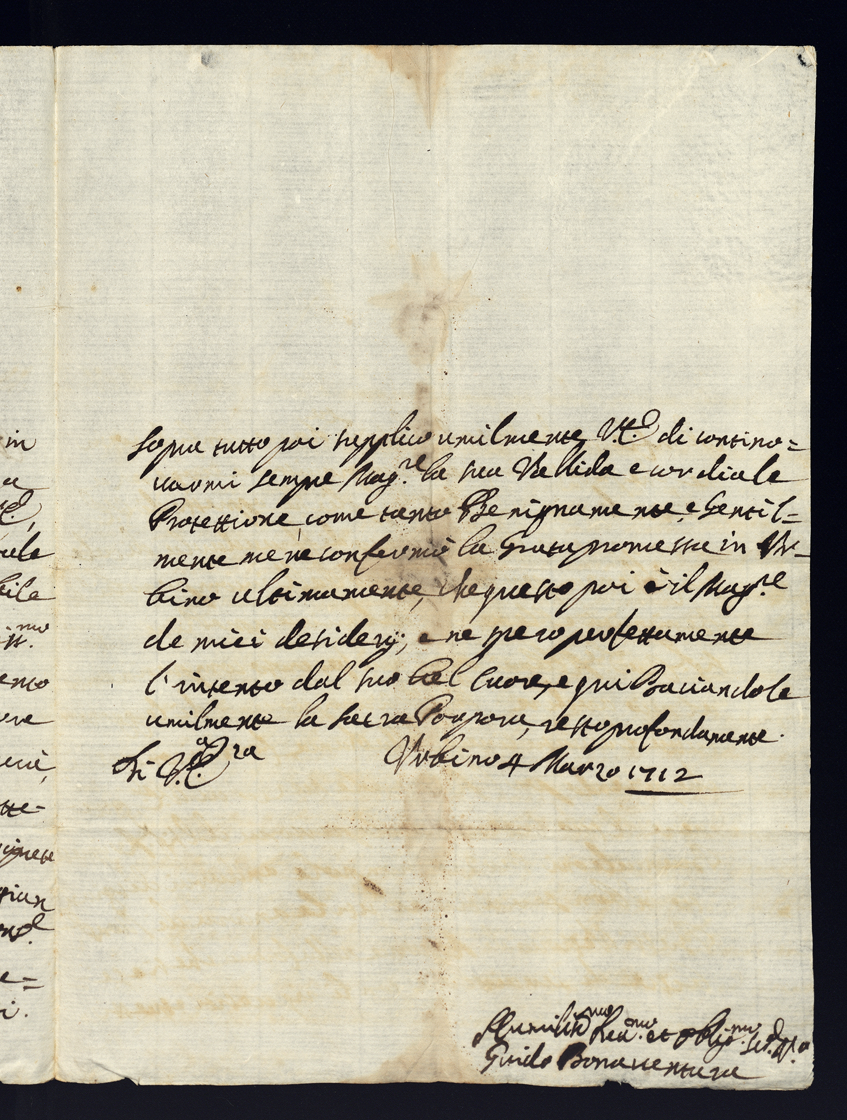 in
a
Sopra tutto poi supplico umilmente V.E. di contino=
uarmi sempre Mag.re la sua Vallida e cordiale
Protettione, come tanto Benignamente, e Gentil=
mente me ne confermò la Grata promessa in Vr-
bino ultimamente, che questo poi è il Mag.re
de miei desiderij; e ne spero perfettamente
l'intento dal suo bel Cuore, e qui Baciandole
umilmente la Sacra Porpora, resto profondamente.
Di V.
Vrbino 4 Marzo 1712
ento
Humiliss.mo et oblig.mo
Guido Bonaventura